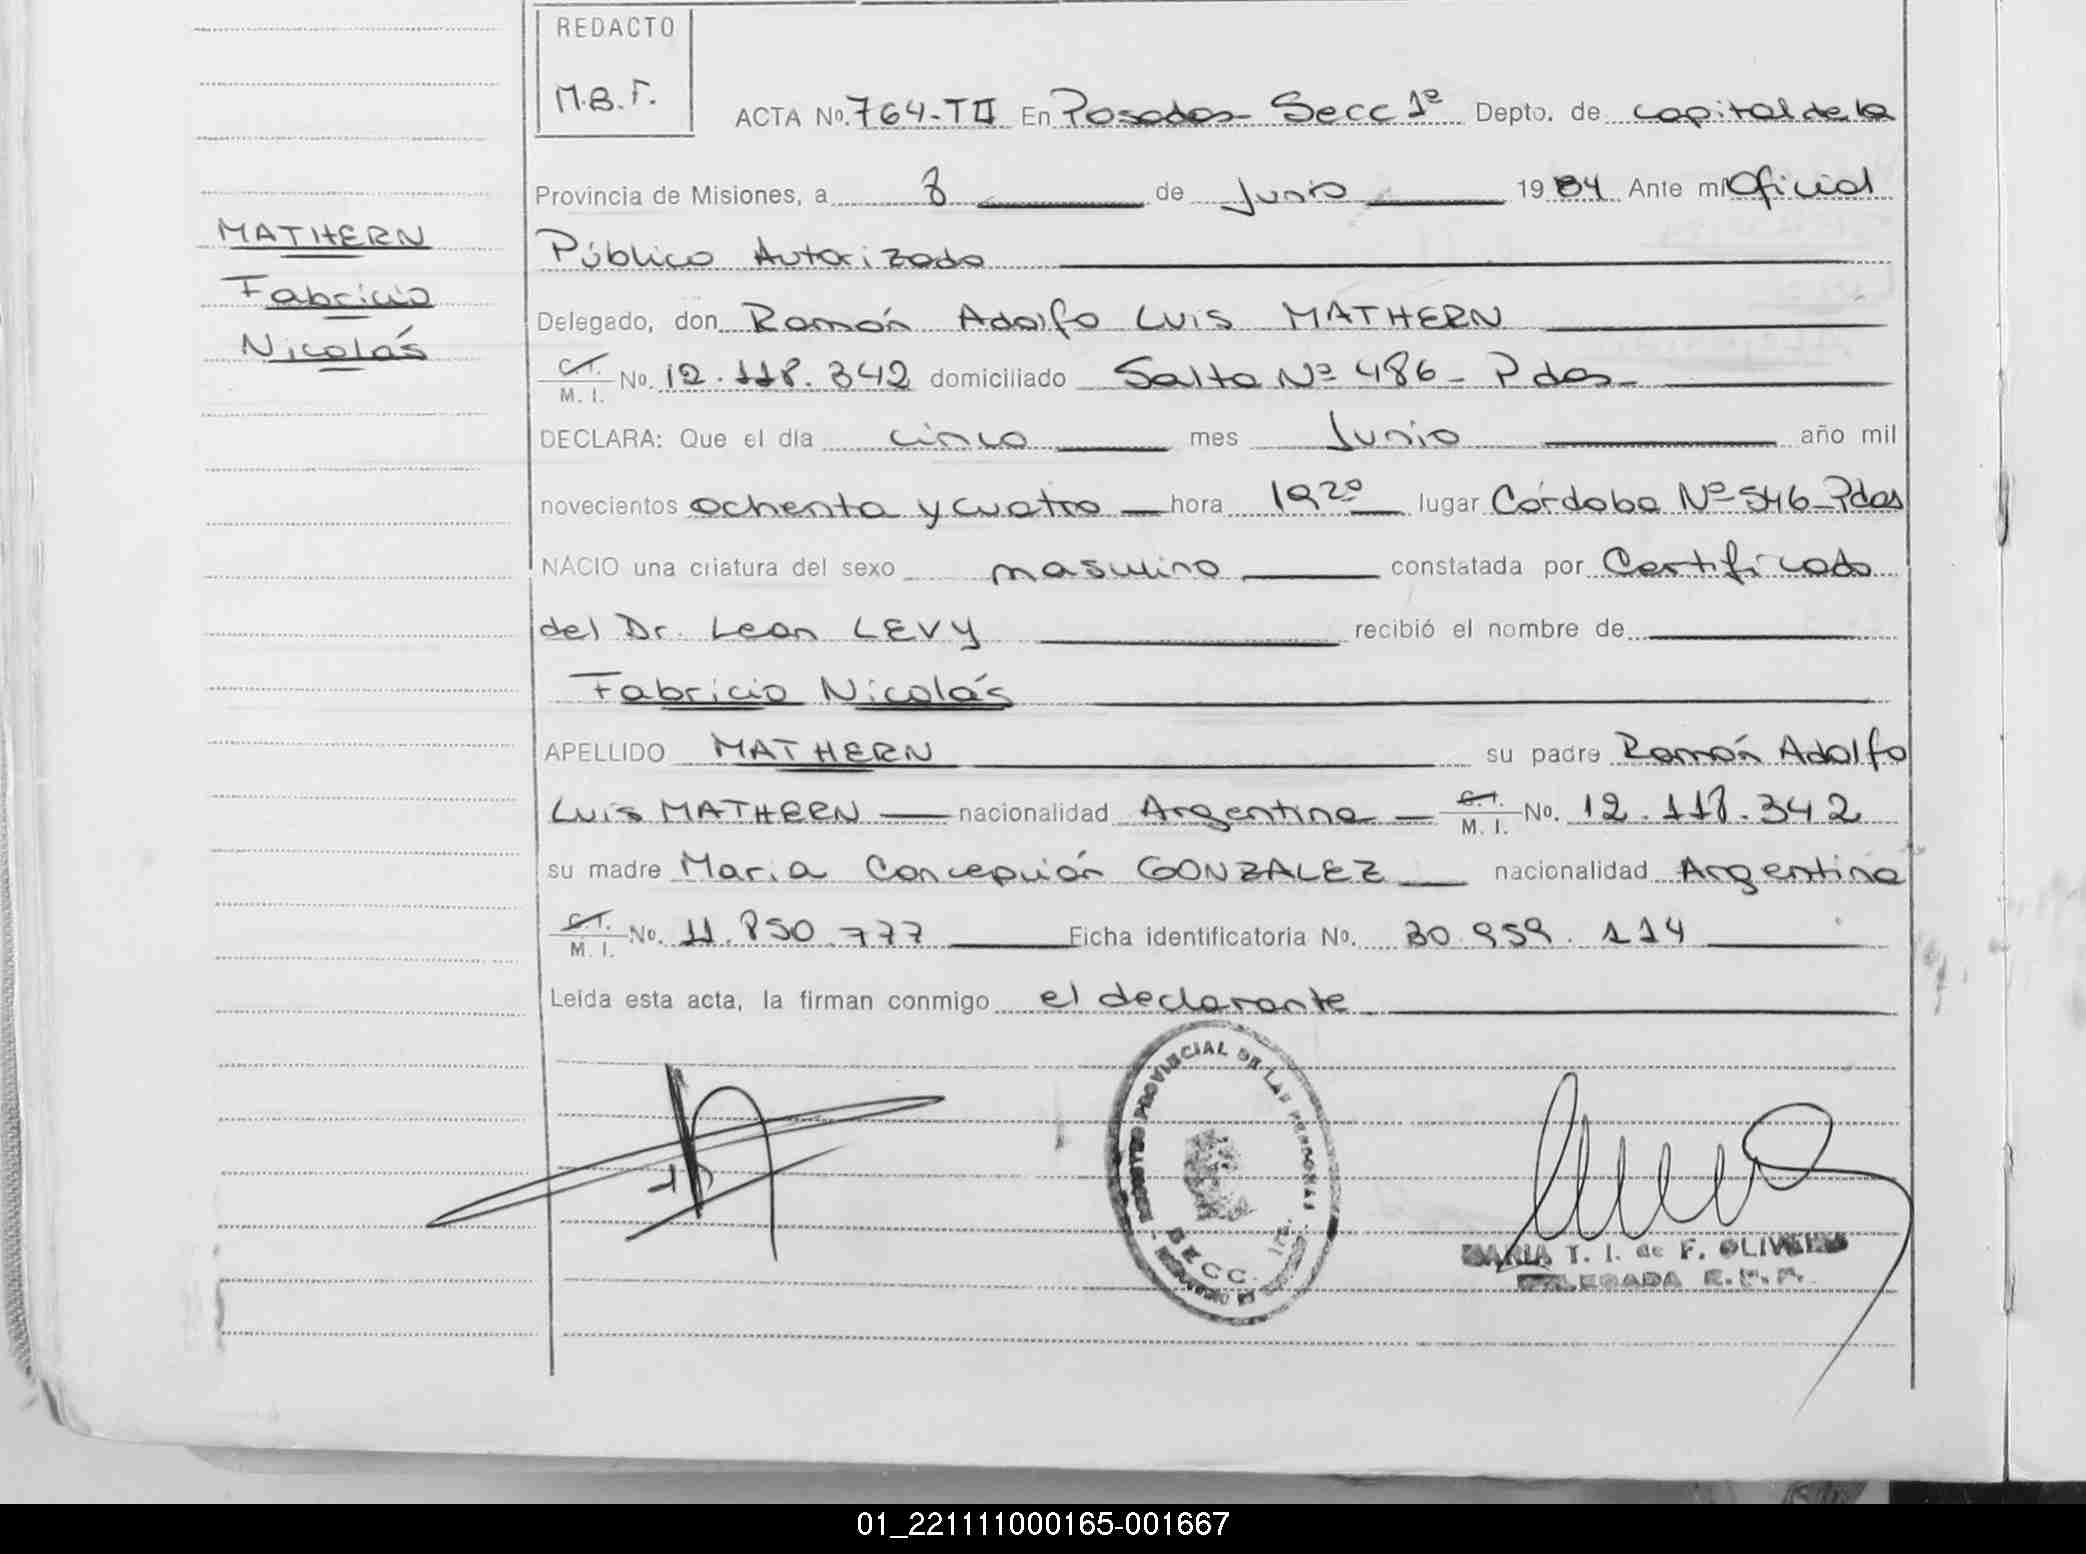 REDACTO
M.B.F.
ACTA No. 764-TII En Posadas Secc 1ª Depto. de capital de la
Provincia de Misiones, a 8 de Junio 1984 Ante mi Oficial
Público Autorizado
MATHERN
Fabricio
Nicolás
Delegado, don Ramón Adolfo Luis MATHERN
C.I. M. I. No. 12.118.342 domiciliado Salta Nº 486 - Pdas
DECLARA: Que el día cinco mes Junio año mil
novecientos ochenta y cuatro hora 19²⁰ lugar Córdoba Nº 546 - Pdas
NACIO una criatura del sexo masculino constatada por Certificado
del Dr. Leon LEVY recibió el nombre de
Fabricio Nicolás
APELLIDO MATHERN su padre Ramón Adolfo
Luis MATHERN nacionalidad Argentina C.I. M. I. No. 12.118.342
su madre Maria Concepción GONZALEZ nacionalidad Argentina
C.I. M. I. No. 11.850.777 Ficha identificatoria No. 30.959.114
Leída esta acta, la firman conmigo el declarante
REGISTRO PROVINCIAL DE LAS PERSONAS
SECC. 1ra.
MARIA T. I. de F. OLIVEIRA
DELEGADA R. P. P.
01_221111000165-001667